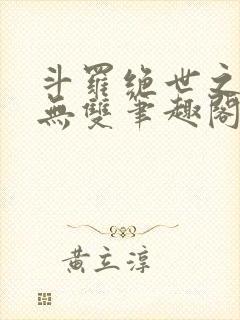 斗羅绝世之
無雙筆趣閣
黃立淳